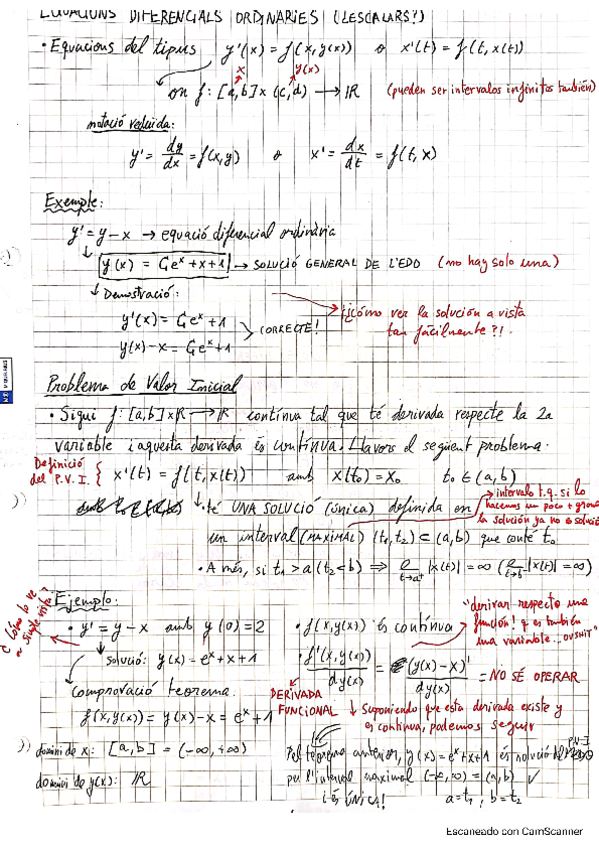 EQUACIONS DIFERENCIALS ORDINARIES (ESCALARS?)
• Equacions del tipus y'(x) = f(x, y(x)) o x'(t) = f(t, x(t))
x y(x)
on f: [a,b] x (c,d) → ℝ (pueden ser intervalos infinitos también)
notació reduida:
y' = dy/dx = f(x,y) o x' = dx/dt = f(t, x)
Exemple:
y' = y - x → equació diferencial ordinària
y(x) = C₁eˣ + x + 1 → SOLUCIÓ GENERAL DE L'EDO (no hay solo una)
↓ Demostració:
y'(x) = C₁eˣ + 1
y(x) - x = C₁eˣ + 1
CORRECTE!
¡¿Cómo ver la solución a vista
tan fácilmente?!
Problema de Valor Inicial
• Sigui f: [a,b] x ℝ → ℝ contínua tal que té derivada respecte la 2a
variable i aquesta derivada és contínua. Llavors el següent problema.
Definició
del P.V.I.
{ x'(t) = f(t, x(t)) amb x(t₀) = x₀ t₀ ∈ (a,b)
↓ • té UNA SOLUCIÓ (única) definida en
intervalo t.q. si lo
hacemos un poco + grande
la solución ya no es solución
un interval (MAXIMAL) (t₁, t₂) ⊂ (a,b) que conté t₀
• A més, si t₁ > a (t₂ < b) ⇒ l t→a⁺ |x(t)| = ∞ (l t→b⁻ |x(t)| = ∞)
Ejemplo:
¿Cómo lo ve
a simple vista?
• y' = y - x amb y(0) = 2
↓ solució: y(x) = eˣ + x + 1
comprovació teorema:
f(x, y(x)) = y(x) - x = eˣ + 1
domini de x: [a,b] = (-∞, +∞)
domini de y(x): ℝ
• f(x, y(x)) és contínua
• f'(x, y(x)) / dy(x) = (y(x) - x)' / dy(x) = NO SÉ OPERAR
"derivar respecto una
función! q es también
una variable... OVSHIT"
DERIVADA
FUNCIONAL
↓ Suponiendo que esta derivada existe y
es contínua, podemos seguir
Pel teorema anterior, y(x) = eˣ + x + 1 és solució del P.V.I
per l'interval maximal (-∞, ∞) = (a,b) ✓
i és ÚNICA! a = t₁, b = t₂
Escaneado con CamScanner